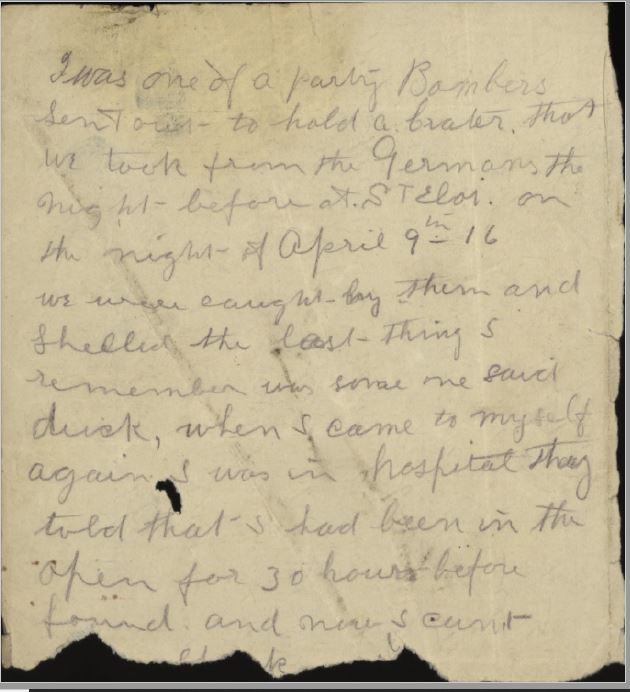 I was one of a party Bombers
Sent out to hold a. crater. that
we took from the Germans the
night before at. St Eloi. on
the night of April 9th 16
we were caught by them and
Shelled the last thing I
remember was some one said
duck, when I came to myself
again I was in hospital they
told that I had been in the
open for 30 hours before
found. and now I cant